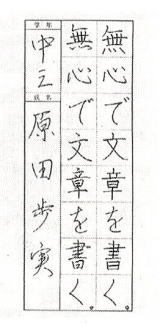 無心で文章を書く。
無心で文章を書く。
学年
中三
氏名
原田歩実